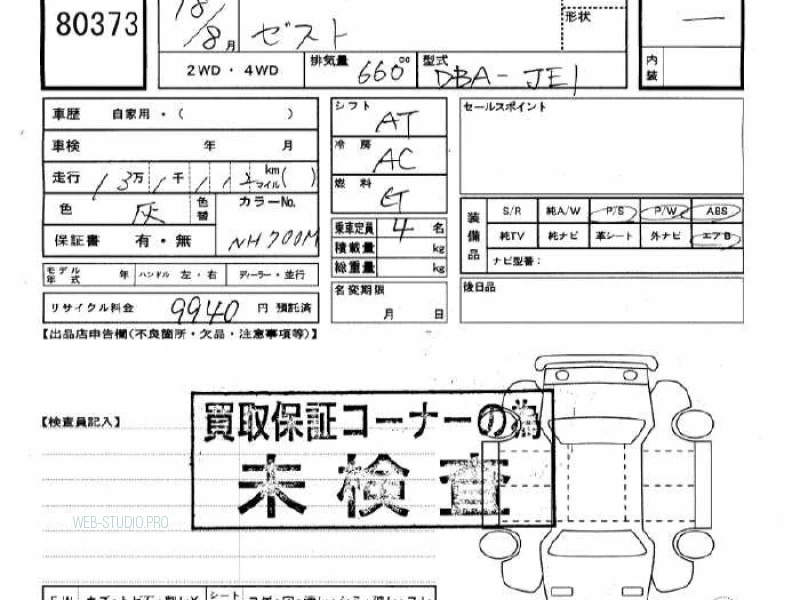 80373
18/8月 ゼスト
形状
一
2WD・4WD
排気量 660 cc
型式 DBA-JE1
内装
車歴 自家用・( )
車検 年 月
走行 13万 1千 1 1 2 km マイル( )
色 灰 色替
カラーNo. NH700M
保証書 有・無
シフト AT
冷房 AC
燃料 G
乗車定員 4名
積載量 kg
総重量 kg
セールスポイント
装備品
S/R 純A/W P/S P/W ABS
純TV 純ナビ 革シート 外ナビ エアB
ナビ型番:
モデル年式 年 ハンドル 左・右 ディーラー・並行
リサイクル料金 9940 円 預託済
名変期限 月 日
後日品
【出品店申告欄(不良箇所・欠品・注意事項等)】
【検査員記入】
買取保証コーナーの為
未検査
WEB-STUDIO.PRO